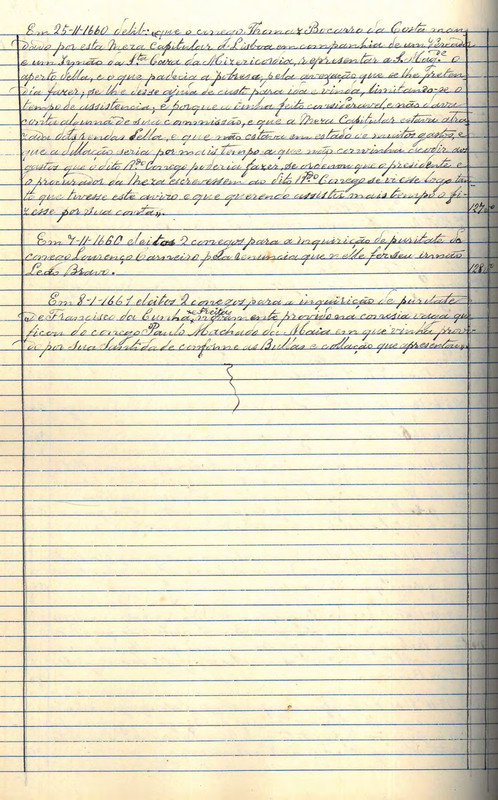 Em 25-11-1660 delib. "que o conego Thomaz Bocarro da Costa man-
dado por esta Meza Capitular a Lisboa em companhia de um Vereador
e um Irmão da S.ta Caza da Mizericordia, reprezentar a S. Mag.de o
aperto della, e o que padecia a pobreza, pela avexação que se lhe preten-
dia fazer, se lhe désse ajuda de custo para ida e vinda, limitando-se o
tempo de assistencia, e porque o tinha feito consideravel, e não dava
conta alguma de sua commissão, e que a Meza Capitular estava atra-
zada das rendas della, e que não estava em estado de muitos gastos, e
que a dillação seria por mais tempo, a que não convinha acodir aos
gastos que o dito R.do Conego poderia fazer, se ordenou que o presidente e
o procurador da Meza escrevessem ao dito R.do Conego se viesse logo tan-
to que tivesse este aviso, e que querendo assistir mais tempo o fi-
zesse por sua conta".
127
Em 7-11-1660 eleitos 2 conegos para a inquirição de puritate do
conego Lourenço Carneiro pela renuncia que nelle fez seu irmão
Leão Bravo.
128
Em 8-1-1661 eleitos 2 conegos para a inquirição de puritate
de Francisco da Cunha de Freitas, novamente provido na conesia vaga que
ficou do conego Paulo Machado da Maia em que vinha provi-
do por sua Santidade conforme as Bullas e collação que apresentou".